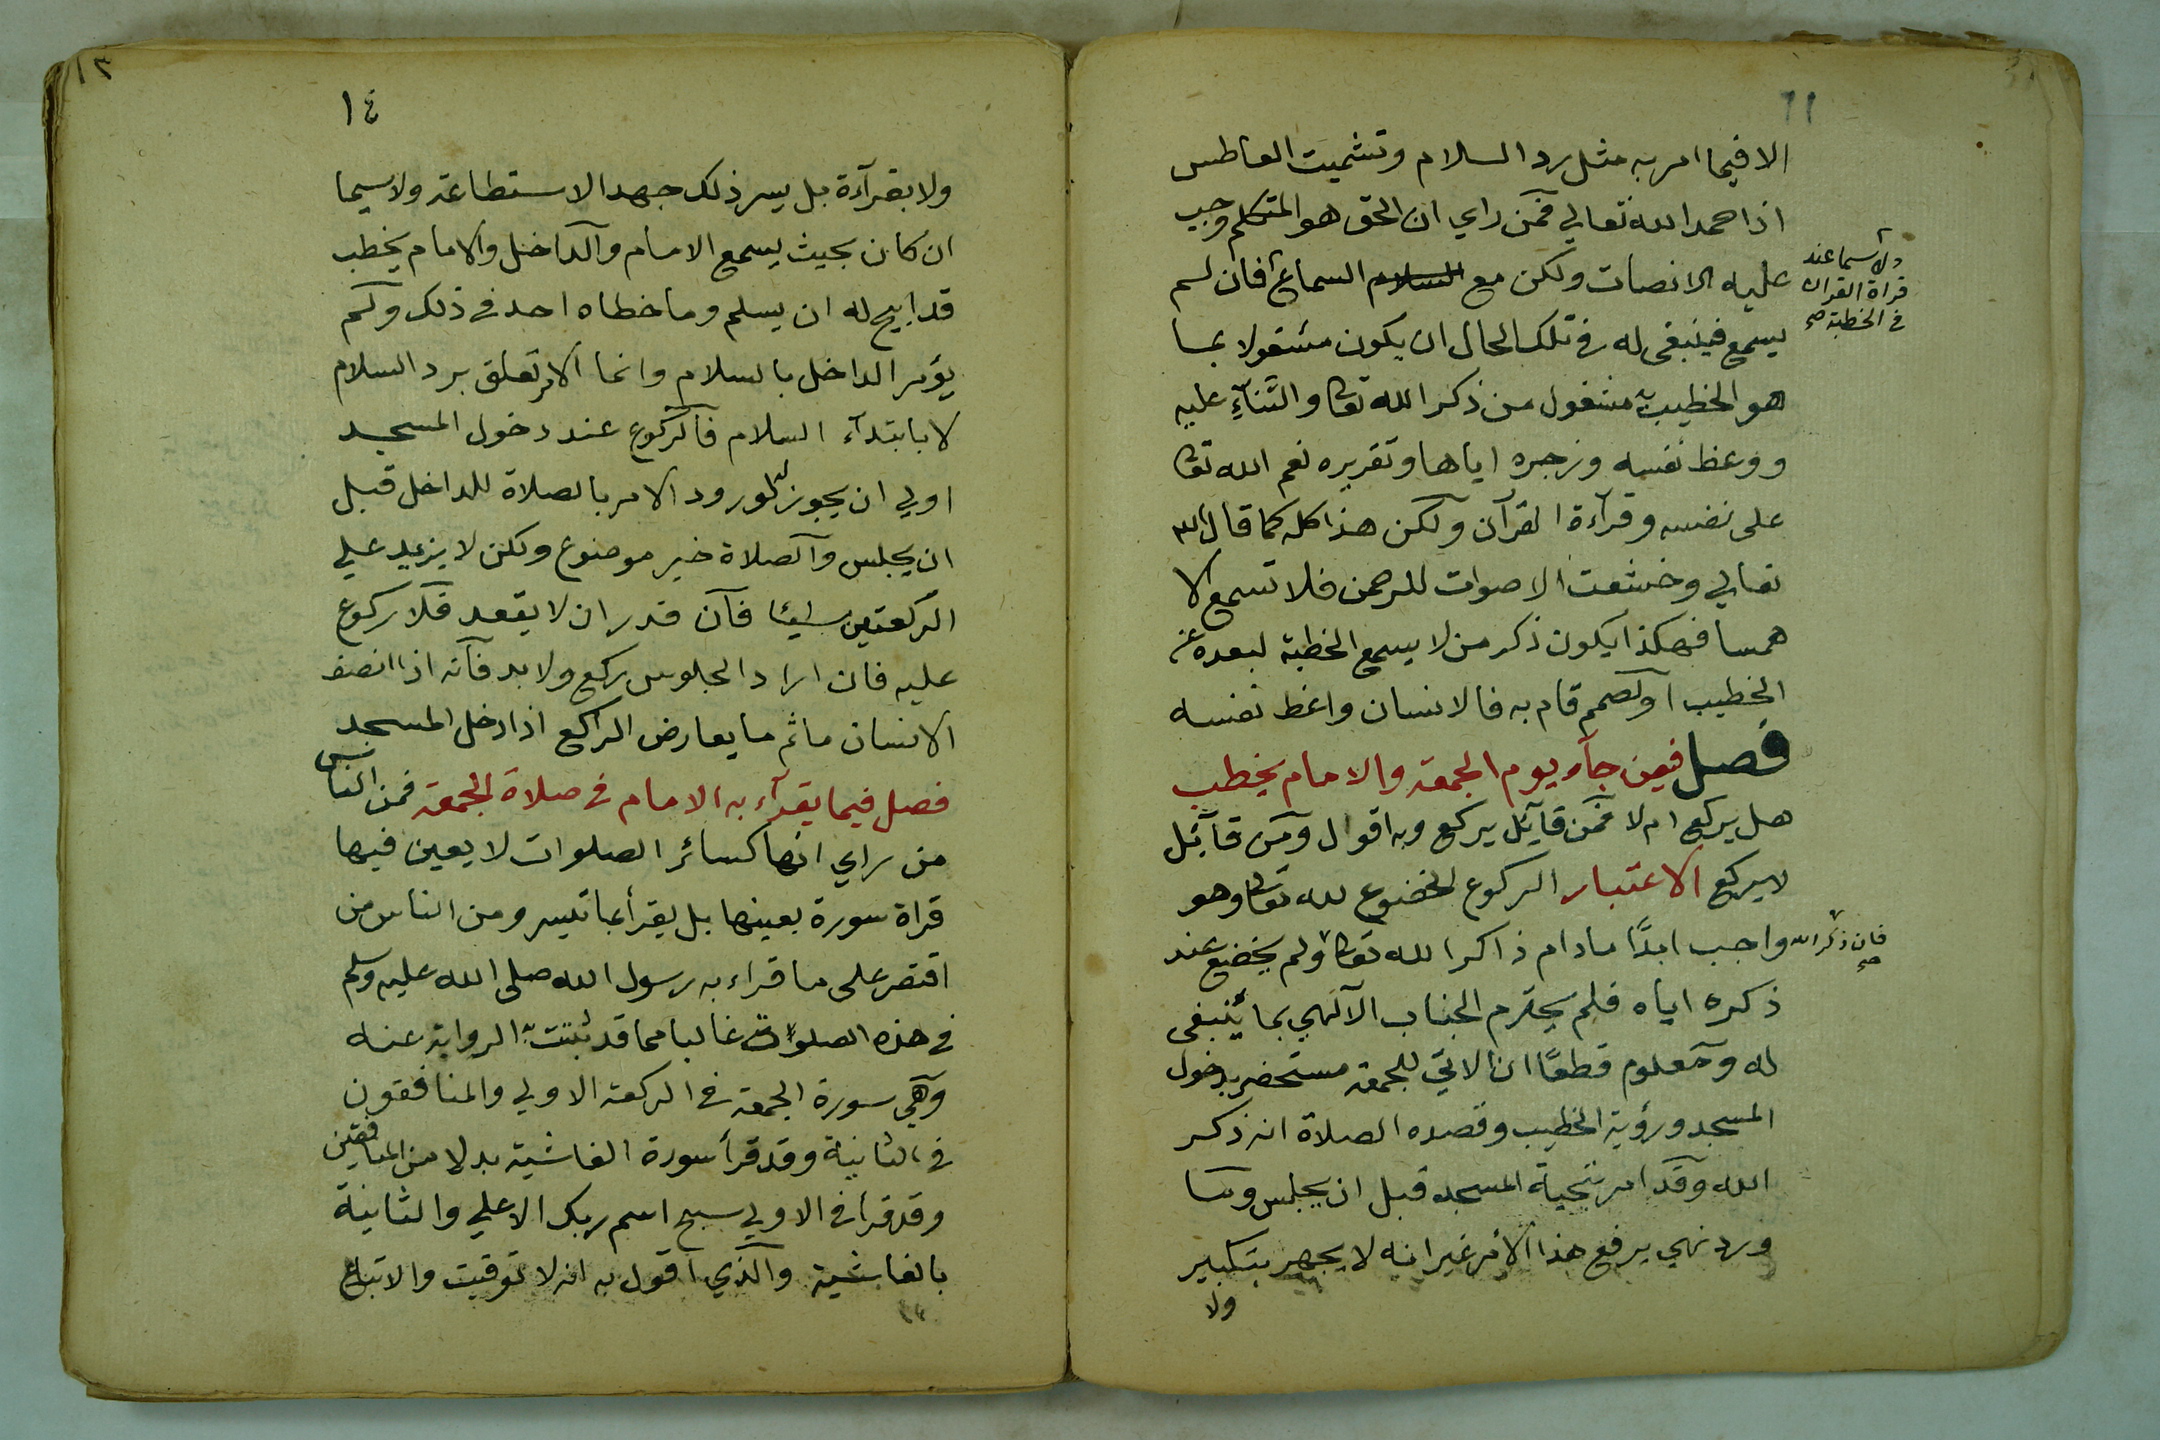 الا فيما امر به مثل رد السلام وتشميت العاطس
اذا حمد الله تعالي فمن راي ان الحق هو المتكلم وجب
عليه الانصات ولكن مع السلام السماع فان لم
ولا سيما عند
قراة القران
في الخطبة صح
يسمع فينبغي له في تلك الحال ان يكون مشغولا بما
هو الخطيب به مشغول من ذكر الله تعا والثناء عليه
ووعظ نفسه وزجره اياها وتقريره نعم الله تعا
على نفسه وقرآءة القرآن ولكن هذا كله كما قال الله
تعالي وخشعت الاصوات للرحمن فلا تسمع الا
همسا فهكذا يكون ذكر من لا يسمع الخطبة لبعده عن
الخطيب او لصمم قام به فالانسان واعظ نفسه
فصل فيمن جآء يوم الجمعة والامام يخطب
هل يركع ام لا فمن قآئل يركع وبه اقول ومن قآئل
لا يركع الاعتبار الركوع الخضوع لله تعا وهو
واجب ابدًا مادام ذاكرا لله تعا ولم يخضع عند
فان ذكر الله
صح
ذكره اياه فلم يحترم الجناب الالهي بما ينبغي
له ومعلوم قطعًا ان الاتي للجمعة مستحضر بدخول
المسجد ورؤية الخطيب وقصده الصلاة انه ذكر
الله وقد امر بتحية المسجد قبل ان يجلس وما
ورد نهي يرفع هذا الأمر غير انه لا يجهر بتكبير
ولا
١٣
١٤
ولا بقرآءة بل يسر ذلك جهد الاستطاعة ولاسيما
ان كان بحيث يسمع الامام والداخل والامام يخطب
قد ابيح له ان يسلم وما خطاه احد في ذلك ولم
يؤمر الداخل بالسلام وانما الامر تعلق برد السلام
لا بابتدآء السلام فالركوع عند دخول المسجد
اولي ان يجوز له لورود الامر بالصلاة للداخل قبل
ان يجلس والصلاة خير موضوع ولكن لا يزيد علي
الركعتين شيئا فان قدر ان لا يقعد فلا ركوع
عليه فان اراد الجلوس ركع ولابد فانه اذا انصف
الانسان ماثم ما يعارض الراكع اذا دخل المسجد
فصل فيما يقرآء به الامام في صلاة الجمعة فمن الناس
من راي انها كسائر الصلوات لا يعين فيها
قراة سورة بعينها بل يقرأ بما تيسر ومن الناس من
اقتصر على ما قراء به رسول الله صلى الله عليه وسلم
في هذه الصلوات غالبا مما قد ثبتت به الرواية عنه
وهي سورة الجمعة في الركعة الاولي والمنافقون
في الثانية وقد قرأ سورة الغاشية بدلا من المنافقين
وقد قرأ في الاولي سبح اسم ربك الاعلي والثانية
بالغاشية والذي اقول به انه لا توقيت والاتباع